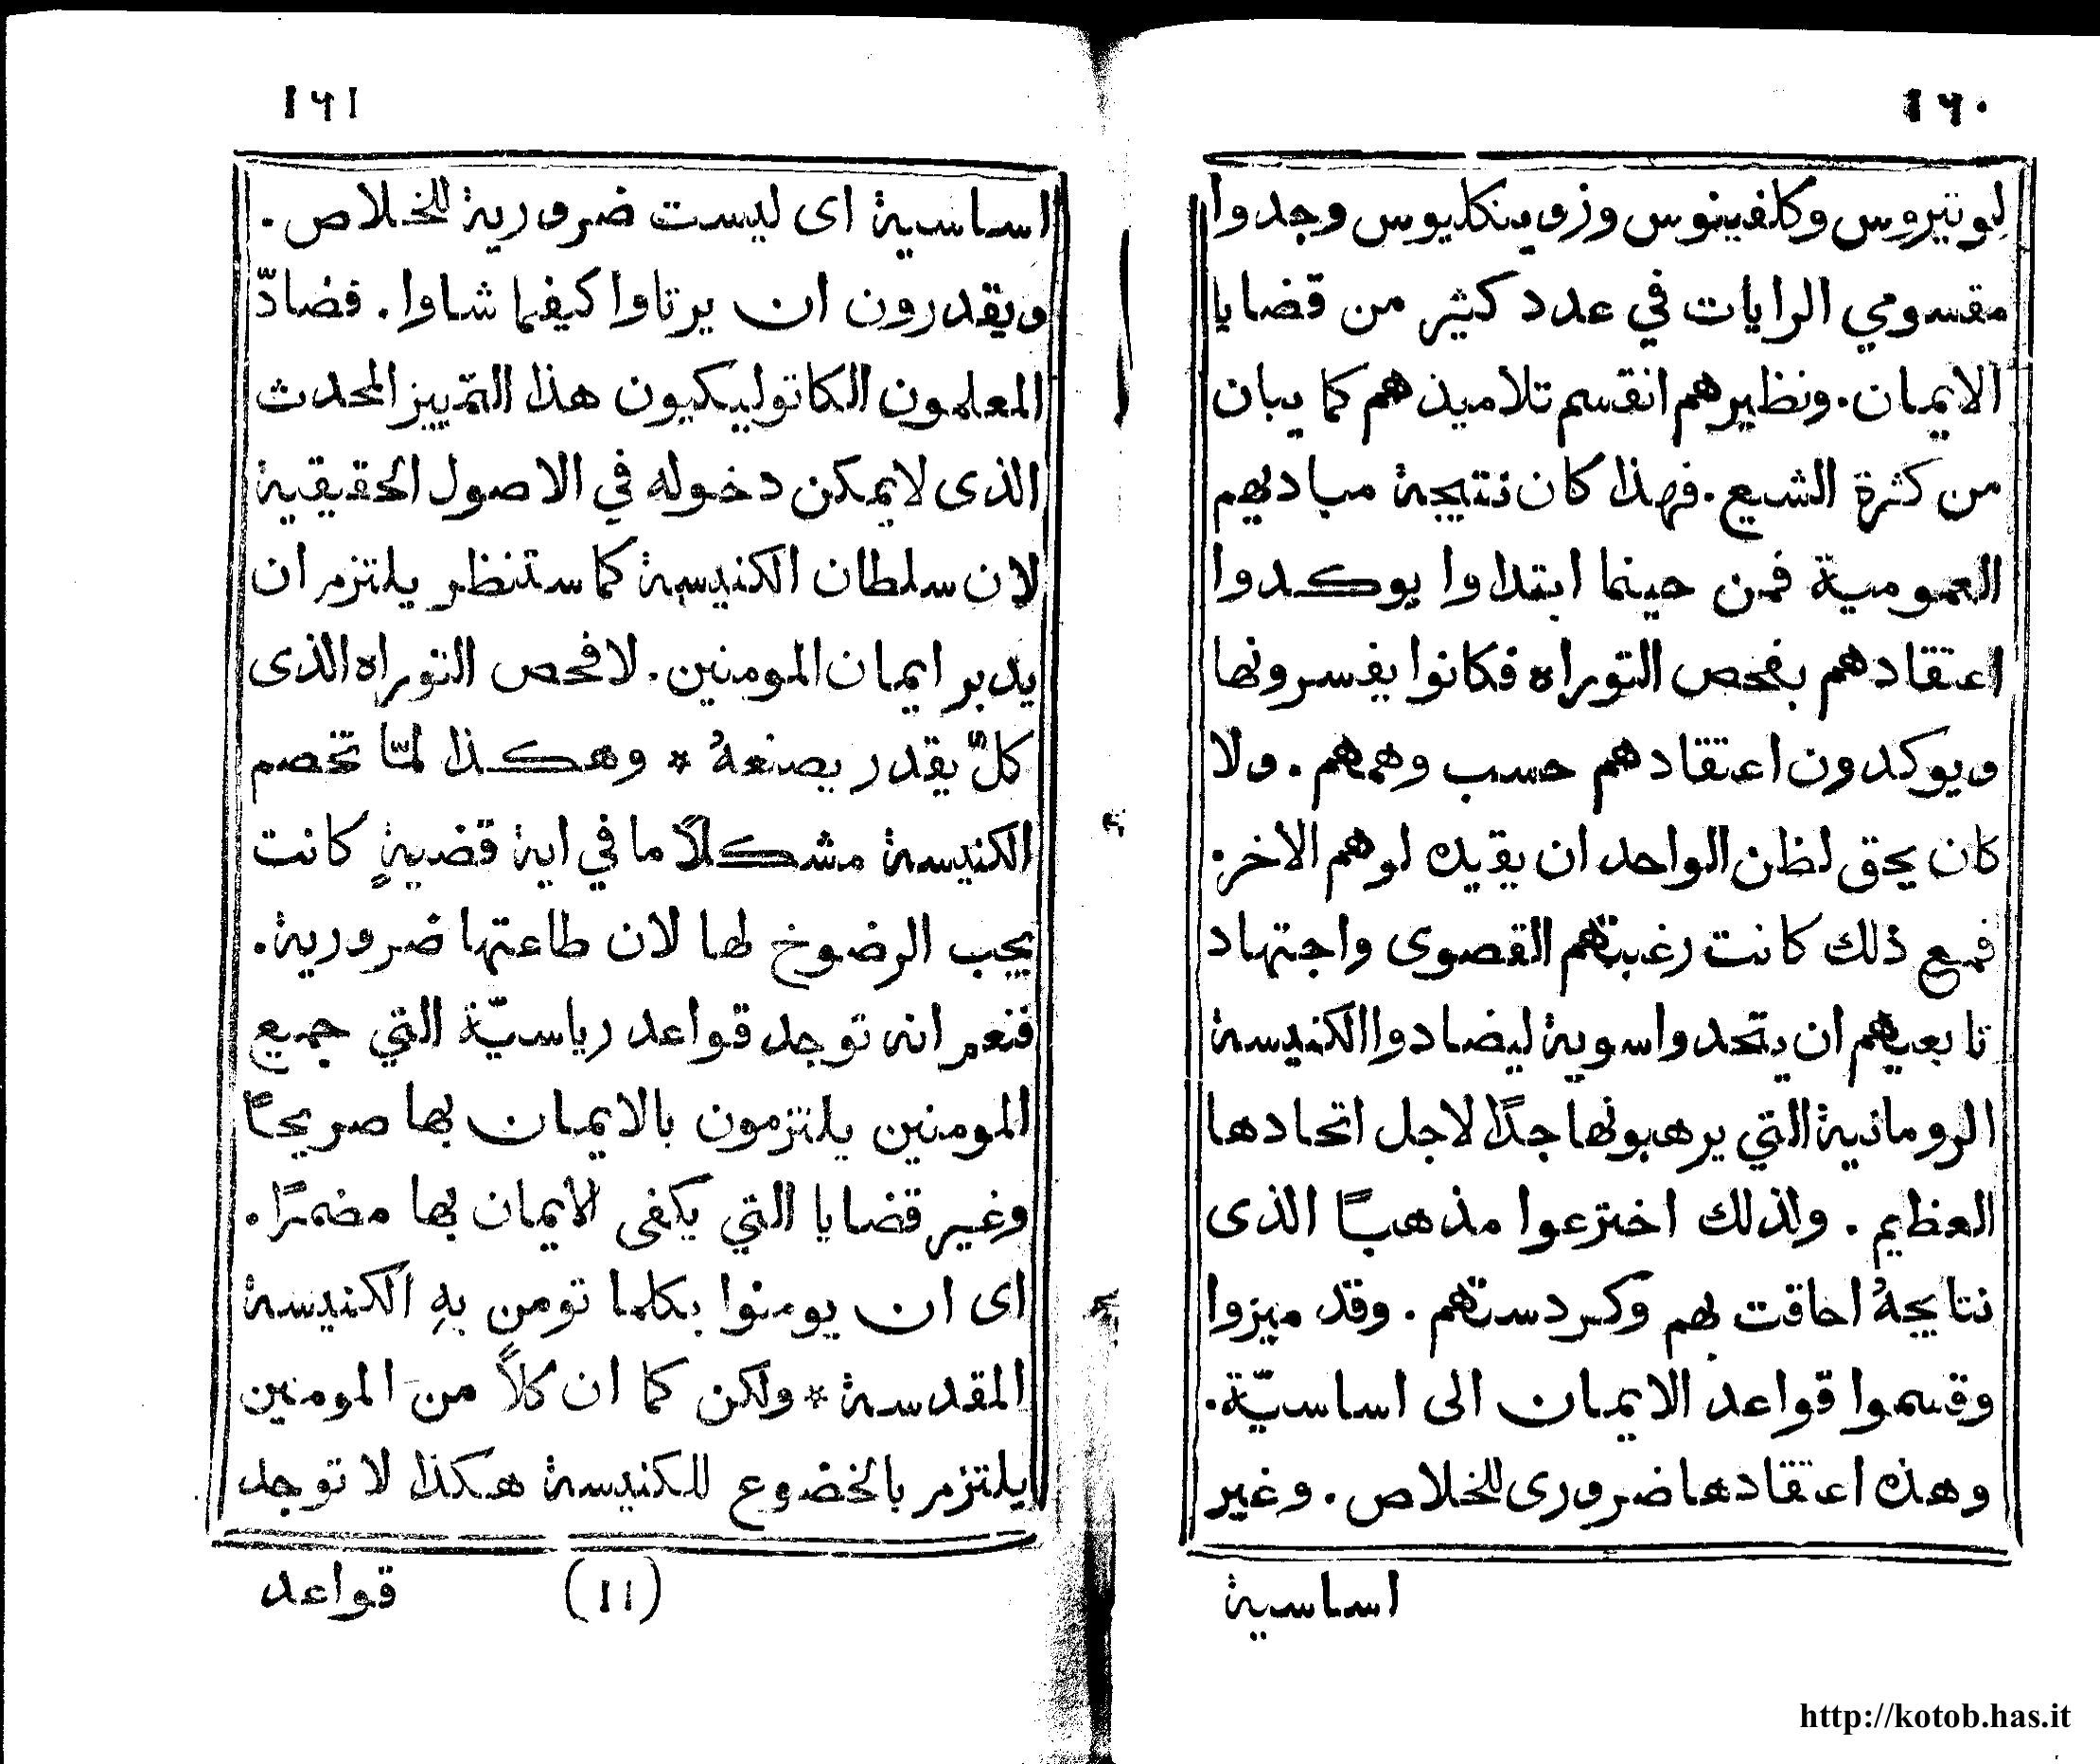 ١٦٠
لوتيروس وكلفينوس وزوينكليوس وجدوا
مقسومي الرايات في عدد كثير من قضايا
الايمان. ونظيرهم انقسم تلاميذهم كما يبان
من كثرة الشيع. فهذا كان نتيجة مباديهم
العمومية فمن حينما ابتداوا يوكدوا
اعتقادهم بفحص التوراه فكانوا يفسرونها
ويوكدون اعتقادهم حسب وهمهم. ولا
كان يحق لظن الواحد ان يقيده لوهم الاخر.
فمع ذلك كانت رغبتهم القصوى واجتهاد
تابعيهم ان يتحدوا سوية ليضادوا الكنيسة
الرومانية التي يرهبونها جدًا لاجل اتحادها
العظيم. ولذلك اخترعوا مذهبًا الذى
نتايجهُ احاقت بهم وكردستهم. وقد ميزوا
وقسموا قواعد الايمان الى اساسيّة.
وهذه اعتقادها ضرورى للخلاص. وغير
اساسية
١٦١
اساسية اى ليست ضرورية للخلاص.
ويقدرون ان يرتاوا كيفما شاوا. فضادّ
المعلمون الكاتوليكيون هذا التمّييز المحدث
الذى لايمكن دخوله في الاصول الحقيقية
لان سلطان الكنيسة كما ستنظر يلتزم ان
يدبر ايمان المومنين. لا فحص التوراه الذى
كلٌ يقدر يصنعهُ * وهكذا لمّا تخصم
الكنيسة مشكلاً ما في اية قضيةٍ كانت
يجب الرضوخ لها لان طاعتها ضرورية.
فنعم انه توجد قواعد رياسيّة التي جميع
المومنين يلتزمون بالايمان بها صريحًا
وغير قضايا التي يكفى الايمان بها مضمرًا.
اى ان يومنوا بكلما تومن بهِ الكنيسة
المقدسة * ولكن كما ان كلاً من المومنين
يلتزم بالخضوع للكنيسة هكذا لا توجد
(١١)
قواعد
http://kotob.has.it